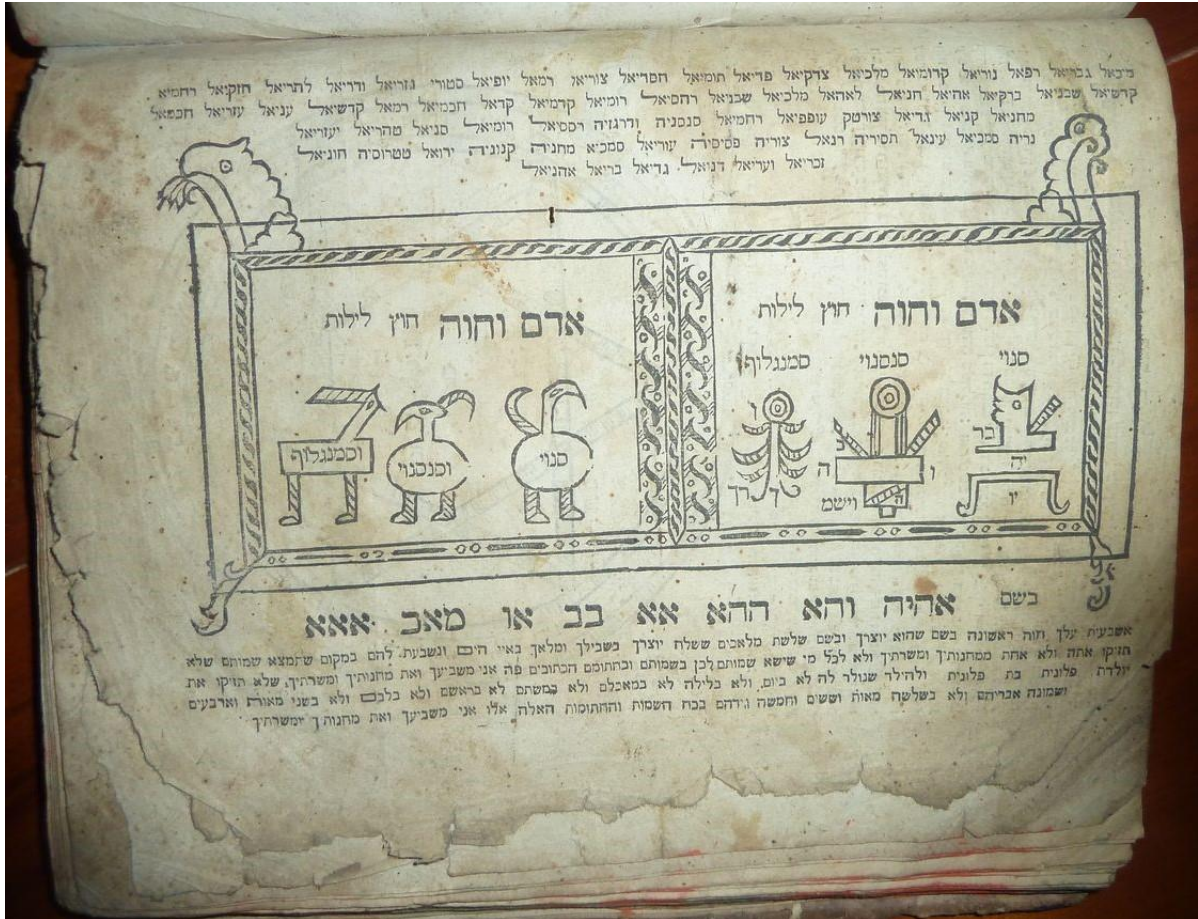 מיכאל גבריאל רפאל נוריאל קדומיאל מלכיאל צדקיאל פדיאל תומיאל חסדיאל צוריאל רמאל יופיאל סטורי גזריאל ודריאל להריאל חזקיאל רחמיא
קדשיאל שבניאל ברקיאל אהיאל חניאל לאהאל מלכיאל שבניאל רהסיאל רומיאל קדמיאל קדאל חכמיאל רמאל קדשיאל עניאל עזריאל חכמאל
מחניאל קניאל גדיאל צורטק עופפיאל רחמיאל סנסניה ודרגזיה רססיאל רומיאל סניאל טהריאל יעזריאל
נריה סמכיאל עינאל תסיריה רנאל צוריה פסיסיה עוריאל סמכיא מחניה קנוניה ירואל טטרוסיה חוניאל
זכריאל ועריאל דניאל גדיאל בריאל אהניאל
אדם וחוה חוץ לילות
סנוי סנסנוי סמנגלוף
אדם וחוה חוץ לילות
סנוי וסנסנוי וסמנגלוף
בשם אהיה והא ההא אא בב או מאב אאא
אשבעית עלך חוה ראשונה בשם שהוא יוצרך ובשם שלשת מלאכים ששלח יוצרך בשבילך ומלאך באיי הים ונשבעת להם במקום שתמצא שמותם שלא
תזיקו אתה ולא אחת ממחנותיך ומשרתיך ולא לכל מי שישא שמותם לכן בשמותם ובחתומם הכתובים פה אני משביעך ואת מחנותיך ומשרתיך שלא תזיקו את
יולדת פלונית בת פלונית ולהילד שנולד לה לא ביום ולא בלילה לא במאכלם ולא במשתם לא בראשם ולא בלבם ולא בשני מאות וארבעים
ושמונה אבריהם ולא בשלשה מאות וששים וחמשה גידהם בכח השמות והחתומות האלה אלו אני משביעך ואת מחנותיך ומשרתיך